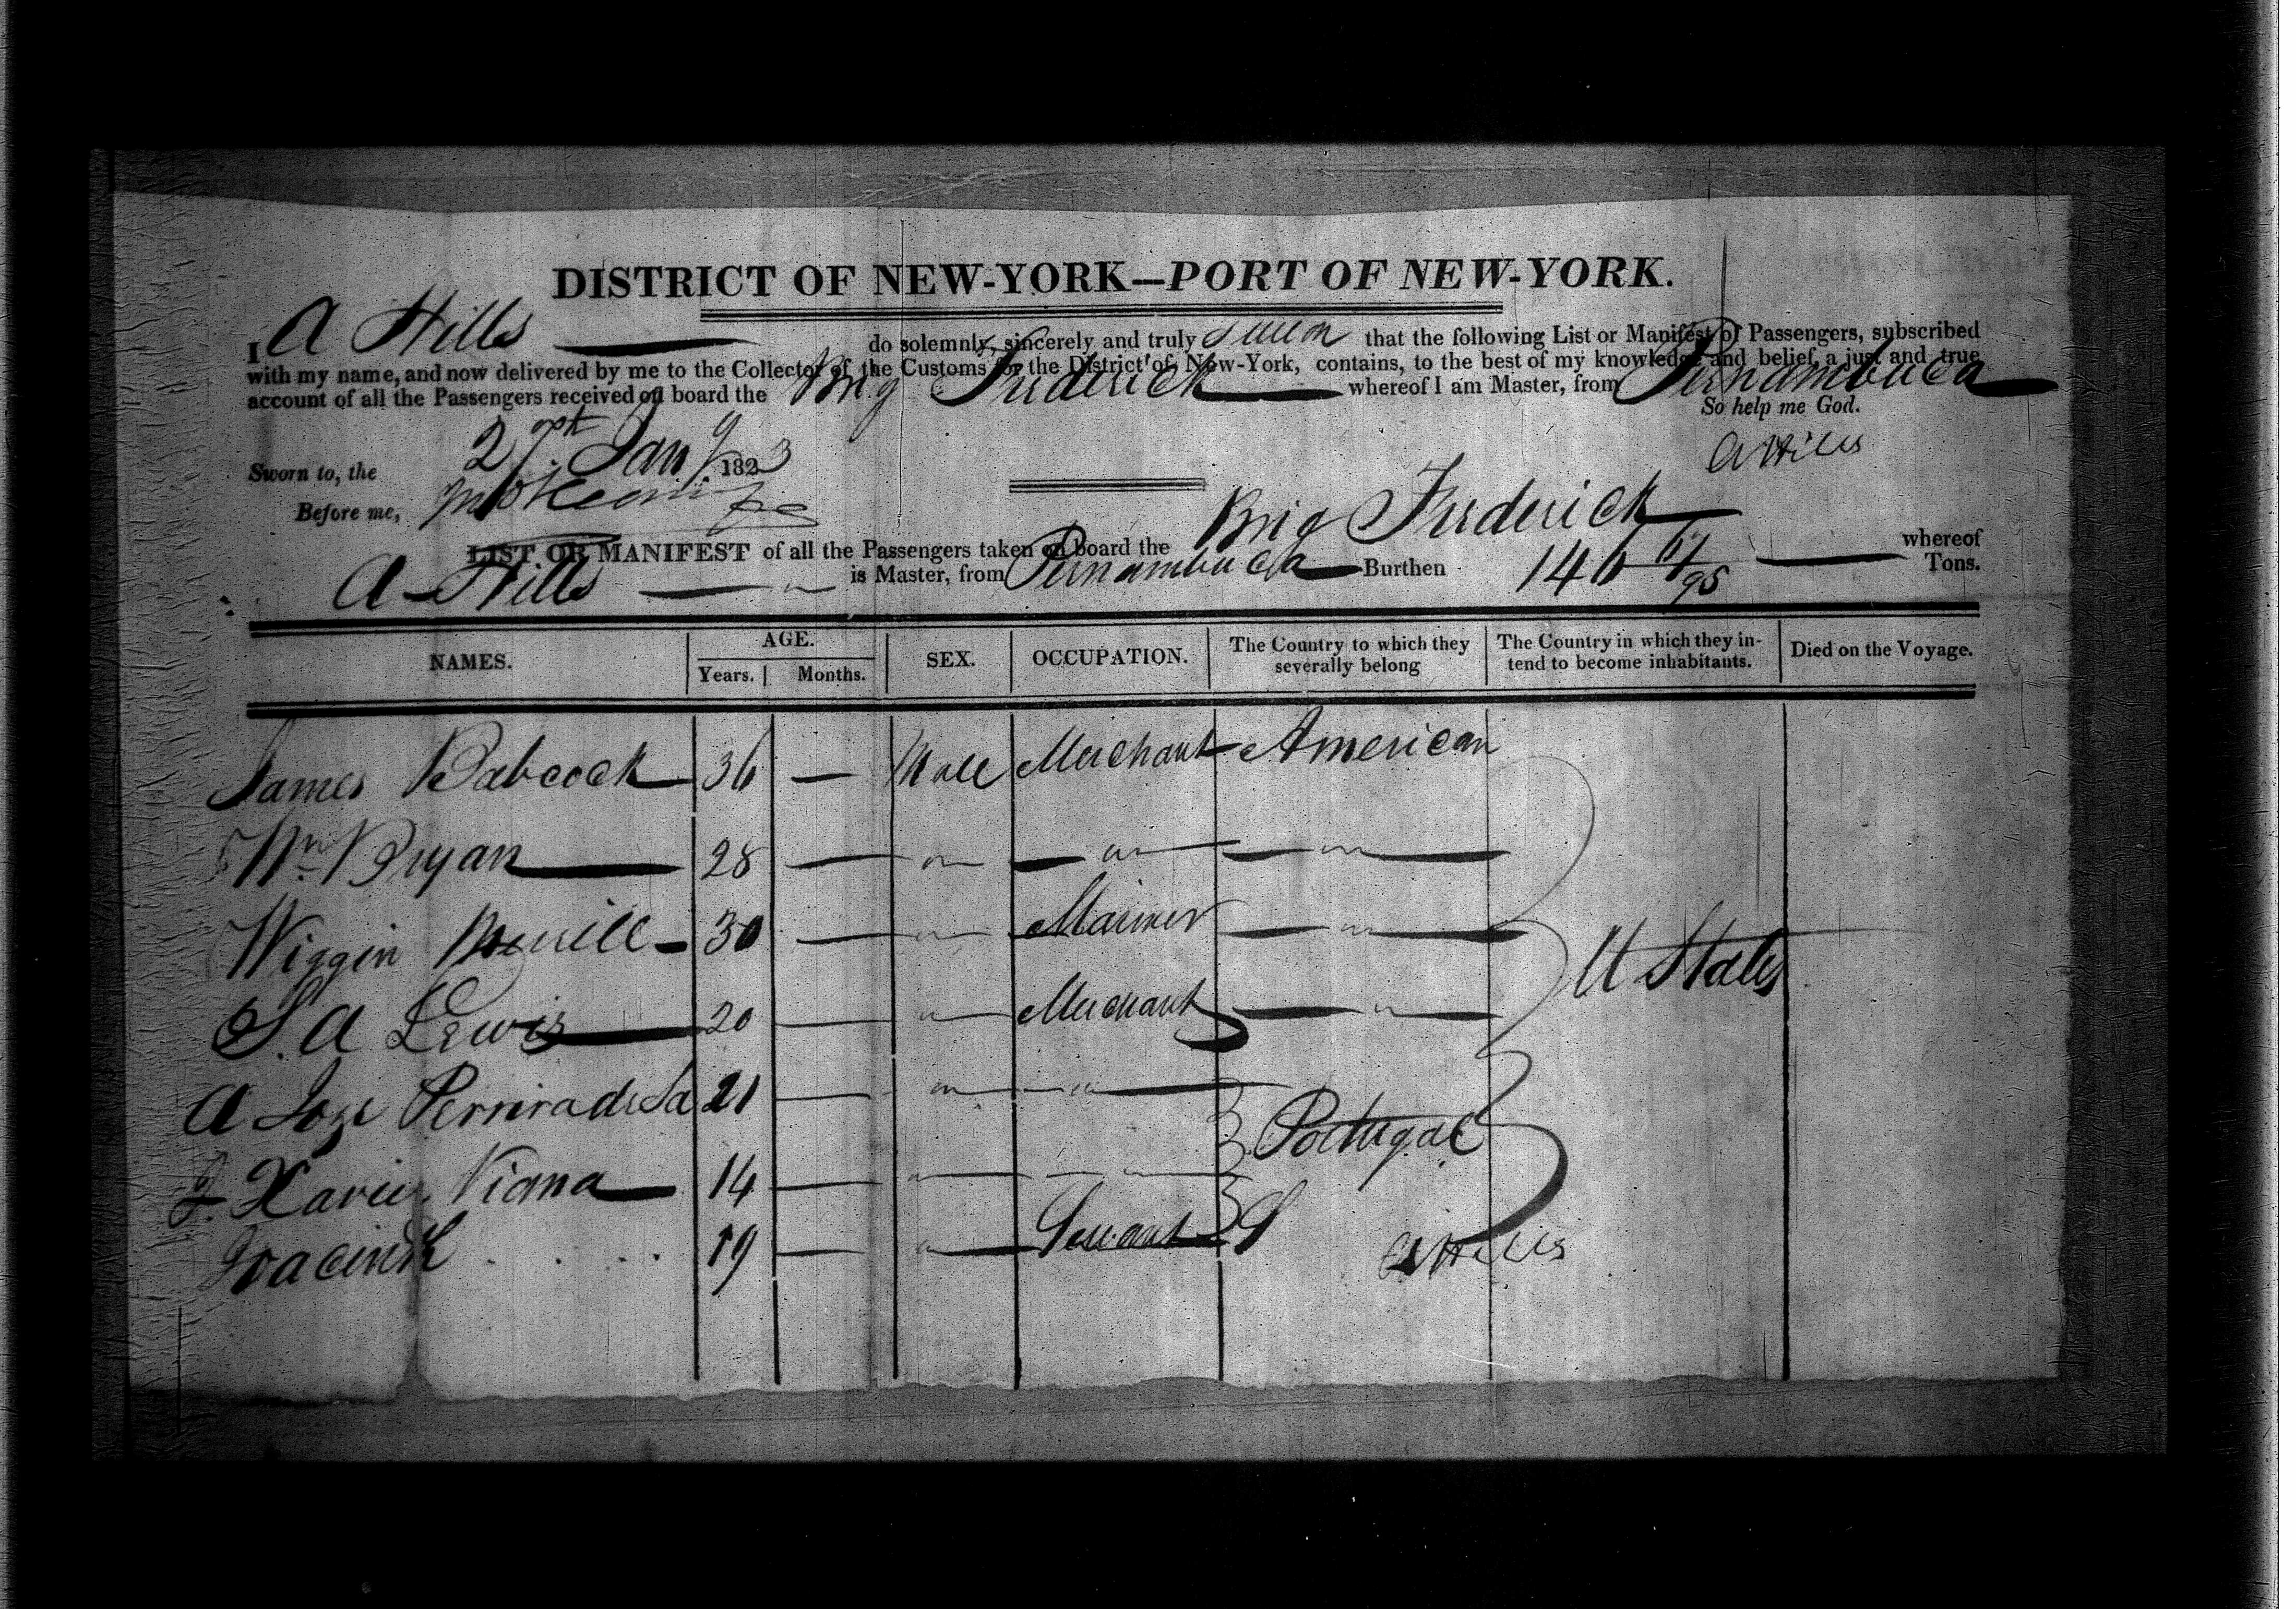 DISTRICT OF NEW-YORK—PORT OF NEW-YORK.
I A Hills do solemnly, sincerely and truly swear that the following List or Manifest of Passengers, subscribed
with my name, and now delivered by me to the Collector of the Customs for the District of New-York, contains, to the best of my knowledge and belief, a just and true
account of all the Passengers received on board the Brig Frederick whereof I am Master, from Pernambuca
So help me God.
Sworn to, the 27 Jany 1823
A Hills
Before me,
LIST OR MANIFEST of all the Passengers taken on board the Brig Frederick whereof
A Hills is Master, from Pernambuca Burthen 146 67/95 Tons.
NAMES. AGE. Years. Months. SEX. OCCUPATION. The Country to which they severally belong The Country in which they intend to become inhabitants. Died on the Voyage.
James Babcock 36 — Male Merchant American
Wm Bryan 28 — " — " — — " —
Wiggin Merrill 30 — " — Mariner — " —
S. A Lewis 20 — " — Merchant — " —
U States
A Joze Perrira de Sa 21 — " — " —
Portugal
F. Xavier Viana 14 — " — " —
19 — " — Servant
A Hills